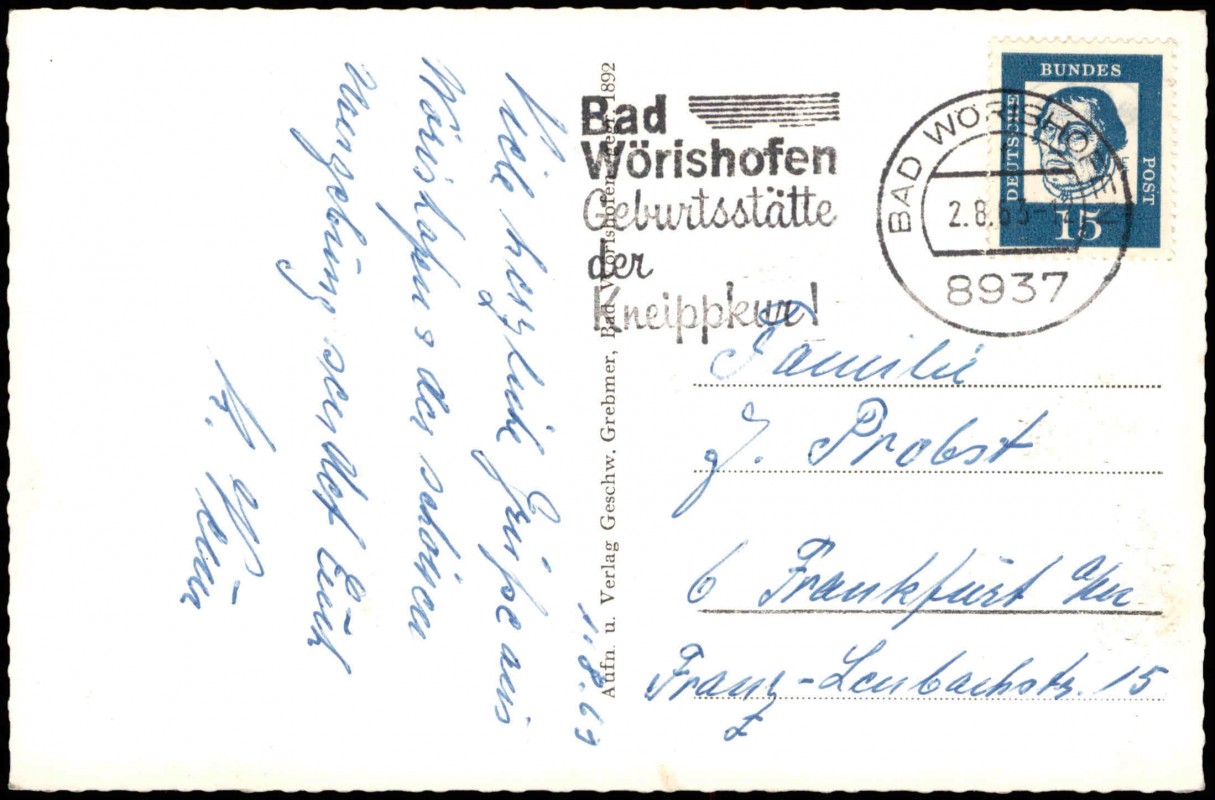 1.8.63
Viele herzliche Grüße aus
Wörishofens der schönen
Umgebung sendet Euch
Aufn. u. Verlag Geschw. Grebmer, Bad Wörishofen, gegr. 1892
Bad
Wörishofen
Geburtsstätte
der
Kneippkur!
BAD WÖRISHOFEN
2.8.63
8937
DEUTSCHE
BUNDES
POST
15
Familie
J. Probst
6 Frankfurt a/M
Franz-Lenbachstr. 15